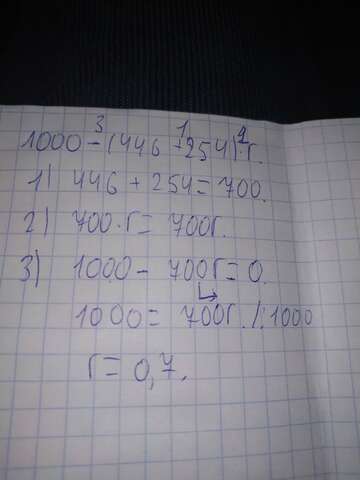 3 1 2
1000-(446+254)·r.
1) 446+254=700.
2) 700·r=700r.
3) 1000-700r=0.
1000=700r. /:1000
r=0,7.